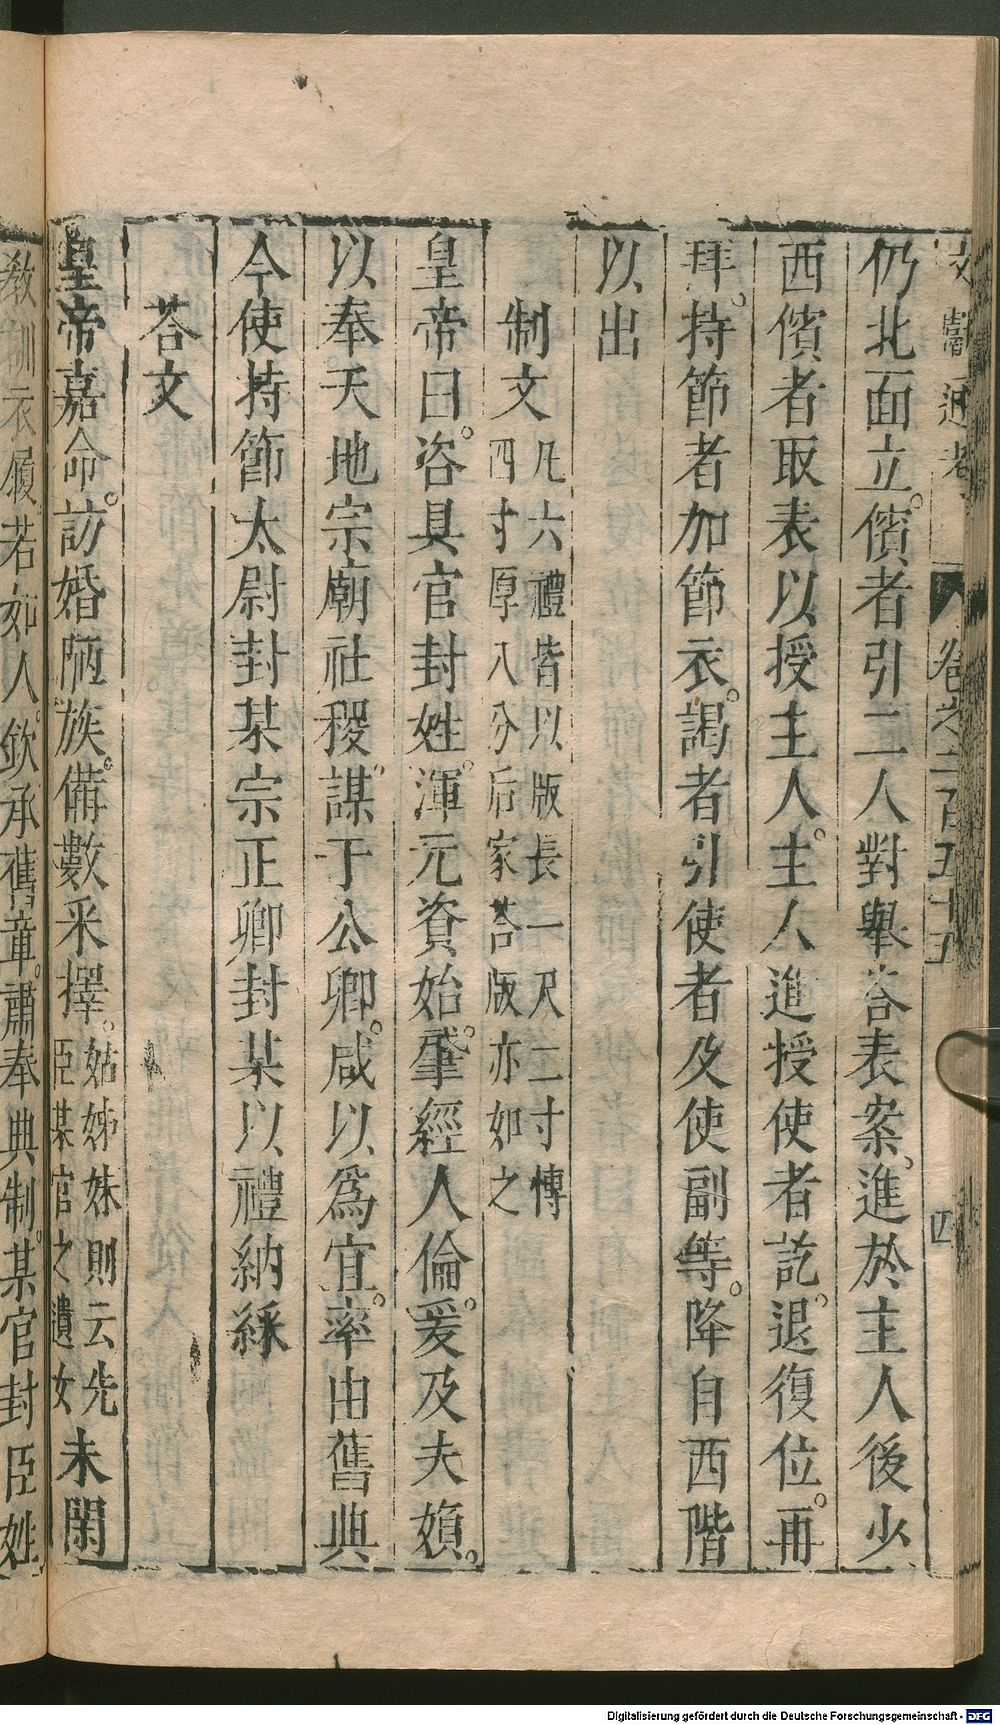 文獻通考 卷之二百五十五 四
仍北面立。儐者引二人對舉荅表案。進於主人後少
西儐者取表以授主人。主人進授使者訖。退復位。再
拜。持節者加節衣。謁者引使者及使副等。降自西階
以出
制文
凡六禮皆以版長一尺二寸博
四寸厚八分后家荅版亦如之
皇帝曰。咨具官封姓。渾元資始。肇經人倫。爰及夫婦。
以奉天地宗廟社稷。謀于公卿。咸以爲宜。率由舊典
今使持節太尉封某宗正卿封某以禮納綵
荅文
皇帝嘉命。訪婚陋族。備數采擇。
姑姊妹則云先
臣某官之遺女
未閑
教訓衣履若如人。欽承舊章。肅奉典制。某官封臣姓
Digitalisierung gefördert durch die Deutsche Forschungsgemeinschaft - DFG